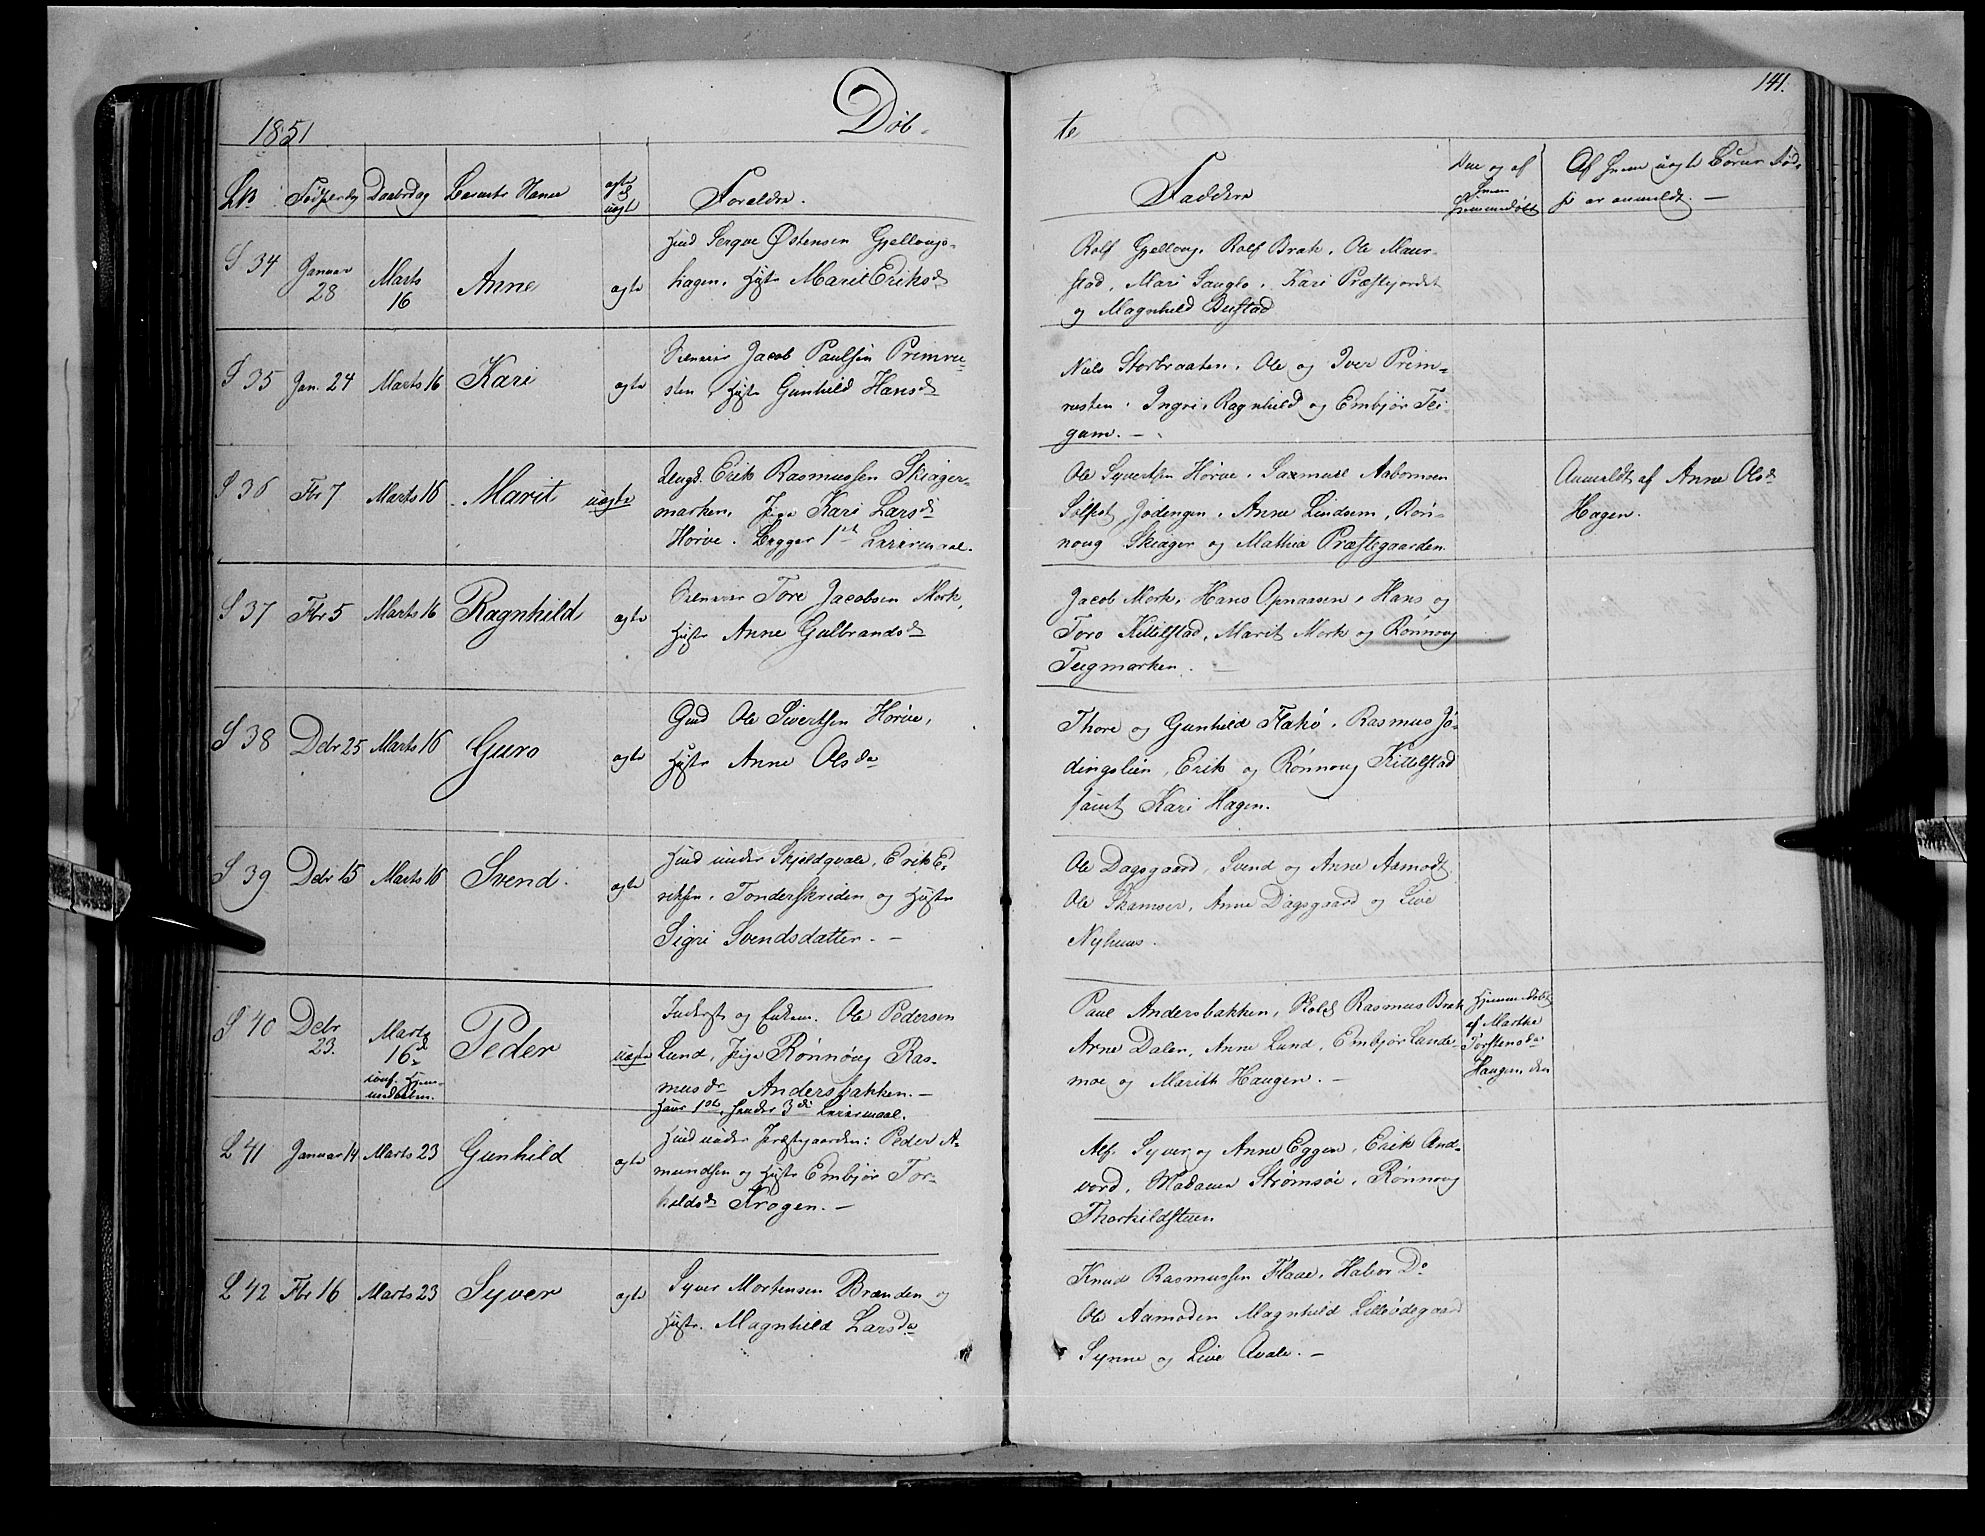 141.
1851 Döb- te
No Födselsdag Daabsdag Barnets Navn ægte & uægt Forældre. Faddere Naar og af hvem hjemmedöbt Af hvem uægte Börns Föd-
sel er anmeldt. —
S 34 Januar 28 Marts 16 Anne ægte
Hmd Serqve Østensen Gjellougs-
hagen, Hustr Marit Eriksd
Rolf Gjelloug, Rolf Brak, Ole Maur-
stad, Mari Sauglo, Kari Præstjordet
og Magnhild Bustad
S 35 Jan. 24 Marts 16 Kari ægte
Jacob Paulsen Primrü-
sten, Hustr Gunhild Hansd
Niels Storbraaten, Ole og Iver Prim-
rusten, Ingri, Ragnhild og Embjör Tei-
gum. —
S 36 Fbr 7 Marts 16 Marit uægte
Ungk. Erik Rasmussen Skiager-
marken, Pige Kari Larsd
Hörve. Begges 1st Leiermaal.
Ole Syvertsen Hörve, Rasmus Asbornsen
Sölfest Jödengen, Anne Lindsem, Rön-
noug Skiager og Mathia Præstegaarden
Anmeldt af Anne Olsd
Hagen.
S 37 Fbr 5 Marts 16 Ragnhild ægte
Tore Jacobsen Mork,
Hustr Anne Gulbrandsd
Jacob Mork, Hans Opnaasen, Hans og
Toro Kittilstad, Marit Mork og Rönnoug
Teigmarken. —
S 38 Debr 25 Marts 16 Guro ægte
Gmd Ole Sivertsen Hörve,
Hustr Anne Olsda
Thore og Gunhild Flakö, Rasmus Jö-
dingslien, Erik og Rönnoug Kittilstad
samt Kari Hagen.
S 39 Debr 15 Marts 16 Svend ægte
Hmd under Skjeldqvale, Erik E-
riksen, Tonderskriden og Hustr
Sigri Svendsdatter. —
Ole Dagsgaard, Svend og Anne Aamodt
Ole Skamser, Anne Dagsgaard og Live
Nyhuus.
S 40 Debr 23. Marts 16d conf. Hjem-
medaaben. Peder uægte
Inderst og Enkem. Ole Pedersen
Lund, Pige Rönnoug Ras-
musdr Andersbakken. —
Hans 1ste, hendes 3die Leiermaal.
Paul Andersbakken, Rasmus Brak
Arne Dalen, Anne Lund, Embjör Lunde-
moe og Marith Haugen. —
Hjemmedöbt
af Marthe
Torstensda
Haugen, den
L 41 Januar 14 Marts 23 Gunhild ægte
Hmd under Præstegaarden: Peder A-
mundsen og Hustr Embjör Tor-
kildsd Krogen. —
Alf, Syver og Anne Eggen, Erik And-
vord, Madame Strömsöe, Rönnoug
Thorkildstuen
L 42 Fbr 16 Marts 23 Syver ægte
Syver Mortensen Brænden og
Hustr. Magnhild Larsda
Knud Rasmussen Flaae, Halvor Do
Ole Aamoden Magnhild Lilleödegaard
Synne og Live Qvale. —